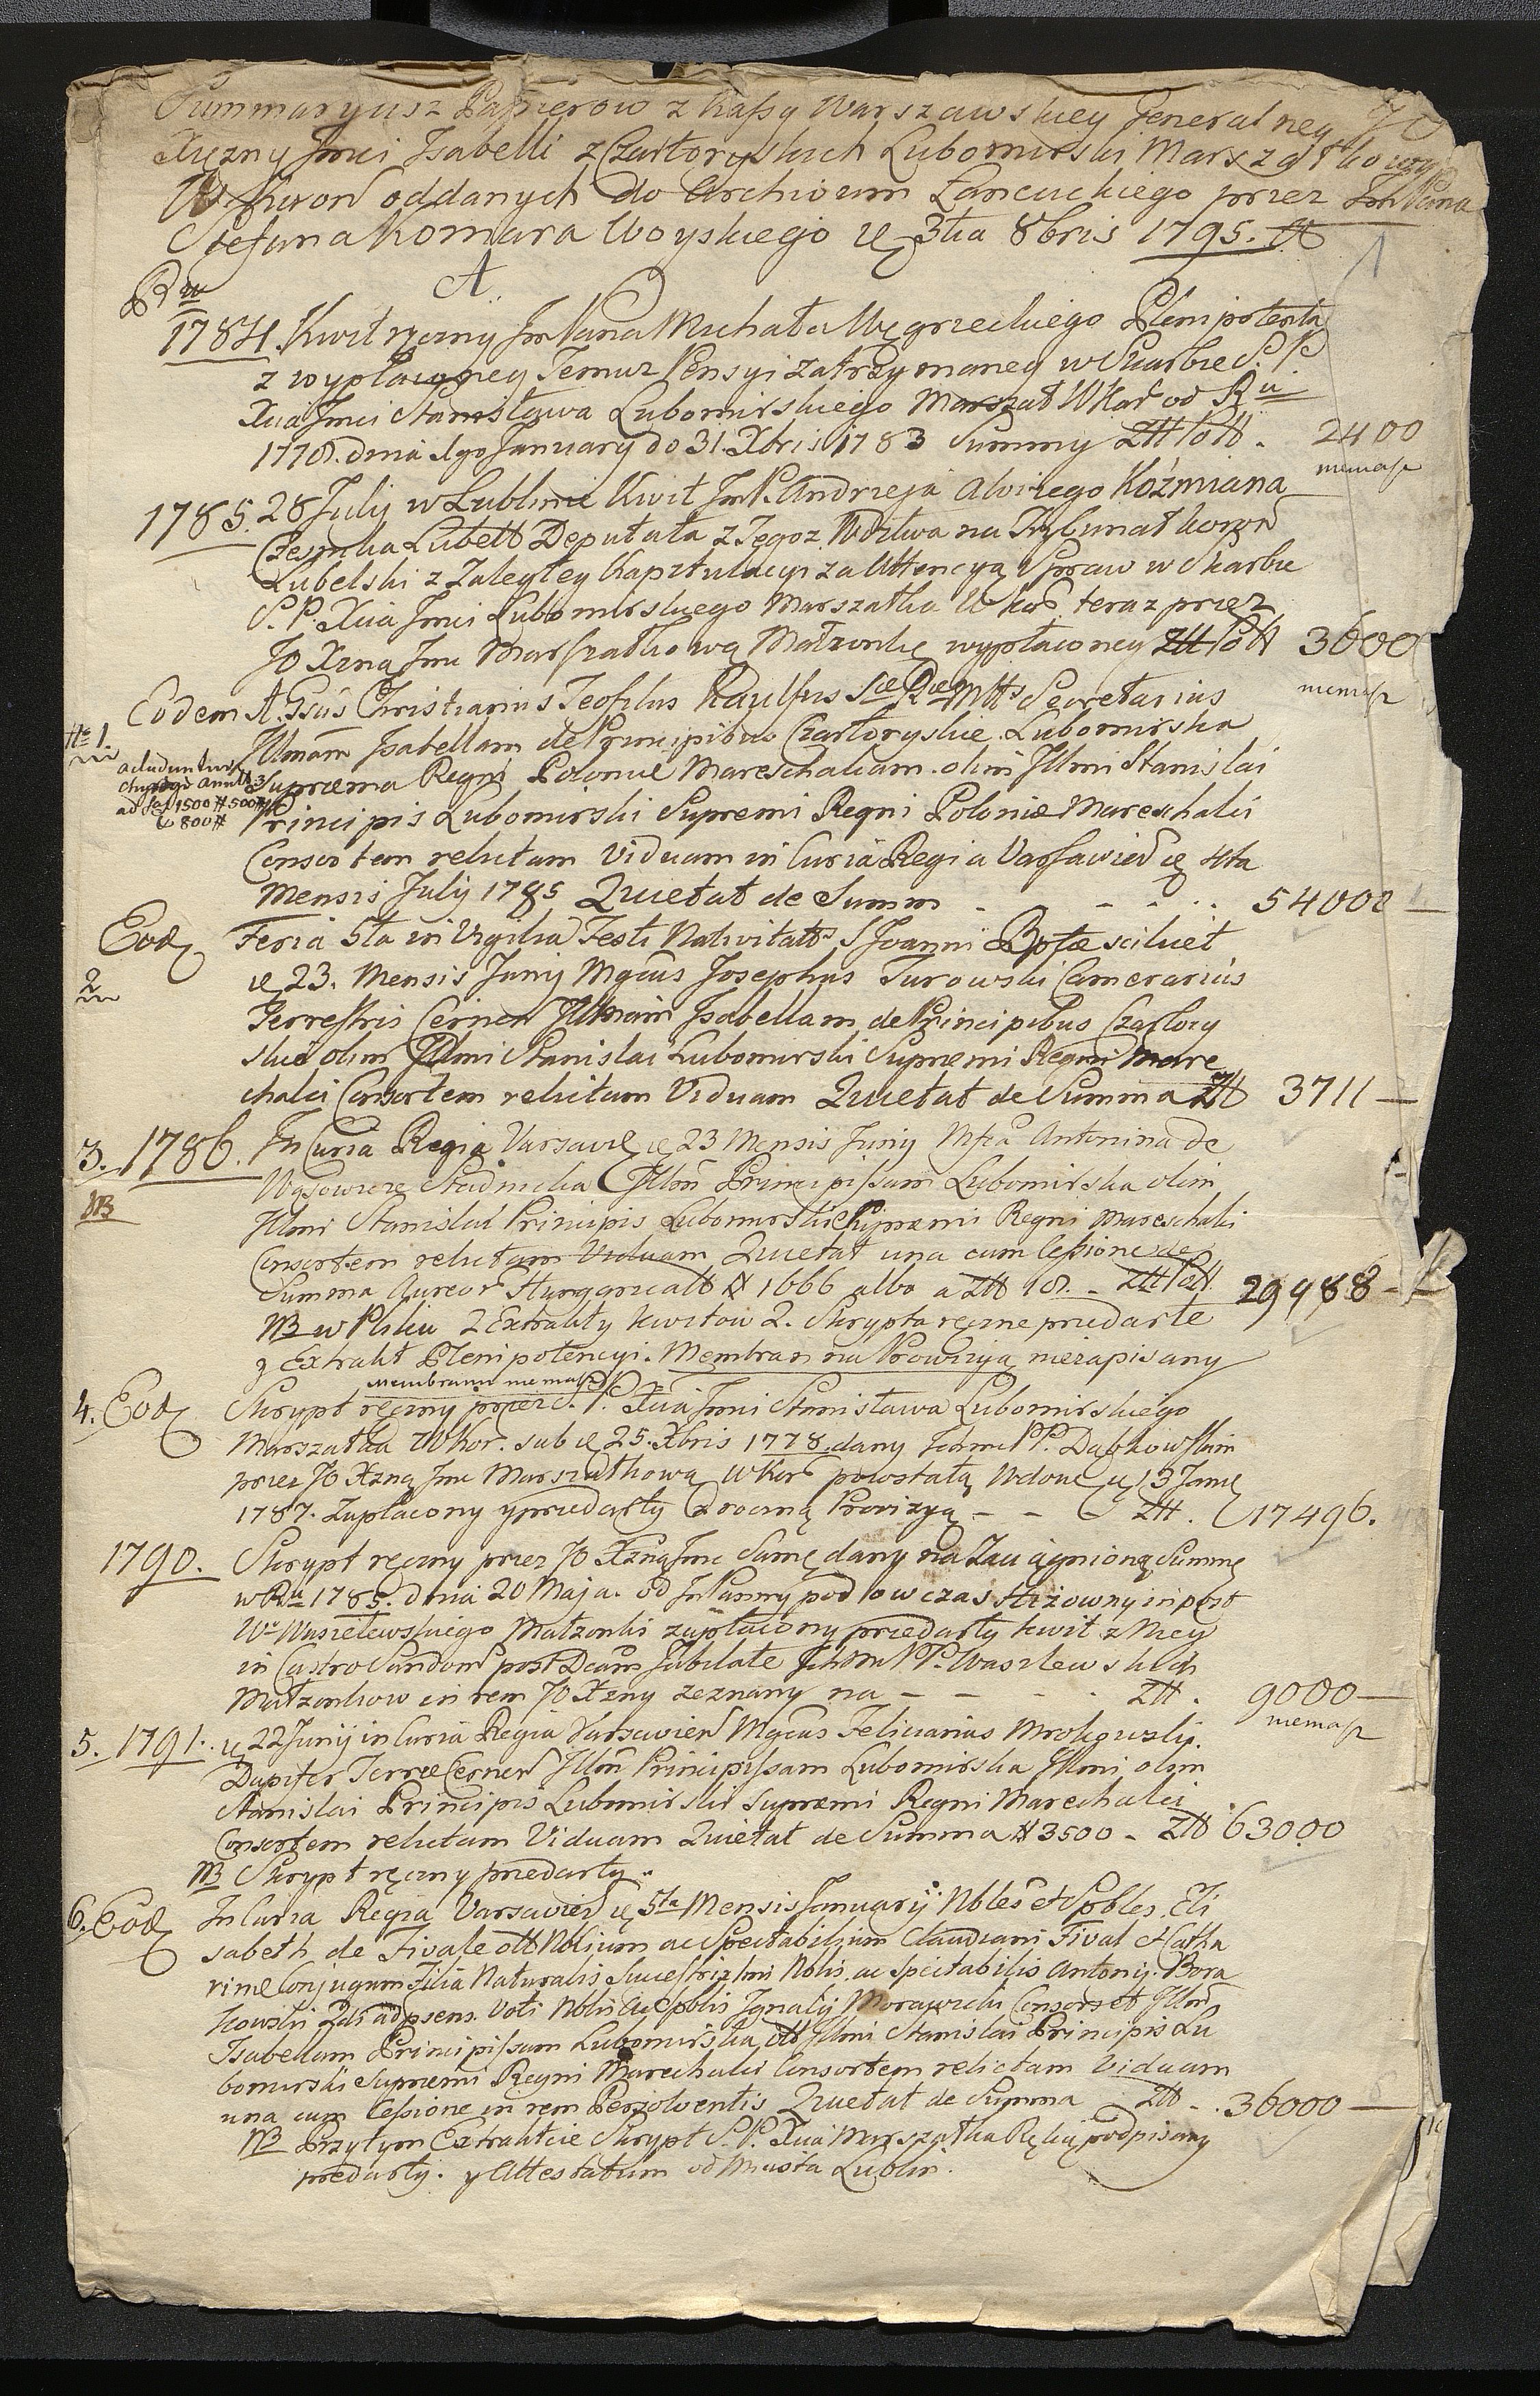 Summaryusz Papierow z Kassy Warszawskiey Jeneralney JO
Xiężny Jmci Isabelli z Czartoryskich Lubomirski Marszałkowey
W Koron oddanych do Archivum Łancuckiego przez Jm Pana
Stefana Komara Woyskiego d 3tia 8bris 1795.
A
Ru
1784. Kwit ręczny Jm Pana Michała Węgrzeckiego Plenipotenta
z wypłaconey Temuz Pensyi zatrzymaney w Skarbie S.P.
Xcia Jmci Stanisława Lubomirskiego Marszał WKor od Ru
1778. dnia 1go January do 31. Xbris 1783 Summy Złł Pol. 2400
niemasz
1785. 28 July w Lublinie Kwit Jm P. Andrzeja Aloizego Koźmiana
Czesnika Lubell Deputata z Tegoz Wdztwa na Trybunał Koron
Lubelski z Zaległey Kapitulacyi za Attencyą Spraw w Skarbie
S.P. Xcia Jmci Lubomirskiego Marszałka WKor teraz przez
JO Xzną Jmc Marszałkową Małzonkę wypłaconey Złł Pol 3600
niemasz
Eodem A. Gsus Christianus Teofilus Kaulfus Sæ Ræ Mttis Secretarius
No 1.
Illmam Isabellam de Principibus Czartoryskie Lubomirska
adiuduntur
chyrogr
ad
1500 # 500 #
et 800 #
Supræma Regni Poloniæ Mareschalcam. olim Illmi Stanislai
Principis Lubomirski Supremi Regni Poloniæ Mareschalci
Consortem relictam Viduam in Curia Regia Varsavien d 4ta
Mensis July 1785 Quietat de Summ - - - .. 54000
Eod Feria 5ta in Vigilia Festi Nativitatis S Joanni Bptæ scilicet
2
d 23. Mensis Junij Mgcus Josephus Turowski Camerarius
Terrestris Cernen Illmam Isabellam de Principibus Czartory
skie olim Illmi Stanislai Lubomirski Supremi Regni Mare
chalci Consortem relictam Viduam Quietat de Summa Złł 3711 —
3. 1786. In Curia Regia Varsavie d 23 Mensis Junij Mfca Antonina de
NB
Wąsowicze Stadnicka Illm Principissam Lubomirska olim
Illmi Stanislai Principis Lubomirski Supremi Regni Mareschalci
Consortem relictam Viduam Quietat una cum Cessione de
Summa Aureor Hungaricall # 1666 albo a Złł 18. - Złł Pol 29988 -
NB w Pliku 2 Extrakty kwitow 2. Skrypta ręczne przedarte
y Extrakt Plenipotencyi. Membran na Prowizyą niezapisany
Membranu niemasz
4. Eod Skrypt ręczny przez S.P. Xcia Jmci Stanisława Lubomirskiego
Marszałka WKor. sub d 25. Xbris 1778. dany Ichmc PP. Dąbkowskim
przez JO Xzną Jmc Marszałkową WKor pozostałą Wdowę d 3 Janu
1787. Zapłacony y przedarty z roczną Prowizyą - - Złł. 17496.
1790. Skrypt ręczny przez JO Xzną Jmc Samę dany na Zaciągnioną Summę
w Ru 1785. dnia 20 Maja. od Jm Panny pod owczas Hizowny in post
Wo Wasielewskiego Małzonki zapłacony przedarty kwit z Niey
in Castro Sandom post Dcam Jubilate Ichm PP. Wasilewskich
Małzonkow in rem JO Xzny zeznany na - - - . Złł. 9000 —
niemasz
5. 1791. d 22 Junij in Curia Regia Varsavien Mgcus Felicianus Mrokowski
Dapifer Terræ Cernen Illm Principissam Lubomirska Illmi olim
Stanislai Principis Lubomirski Supremi Regni Marechalci
Consortem relictam Viduam Quietat de Summa # 3500 - Złł 63000
NB Skrypt ręczny przedarty.
6. Eod In Curia Regia Varsavien d 5ta Mensis January Nobles et Spbles Eli
sabeth de Fivale oll Nobilium ac Spectabilium Claudiani Fival et Catha
rinæ Conjugum Filia Naturalis Nobis ac Spectabilis Antonij Bora
kowski ad psens Voti Nobilis ac Spblis Ignatij Morawicki Consors et Illm
Isabellam Principissam Lubomirska oll Illmi Stanislai Principis Lu
bomirski Supremi Regni Marechalci Consortem relictam Viduam
una cum Cessione in rem Perzolventis Quietat de Summa Złł - . 36000 —
NB Przytym Extrakcie Skrypt S.P. Xcia Marszałka Ręką podpisany
przedarty. y Attestatum od Miasta Lublin.